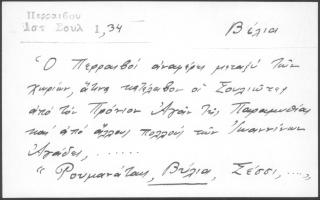 Περραιβου
Ιστ Σουλ 1, 34
Βύλια
"Ο Περραιβός αναφέρει μεταξύ των
χωρίων, άτινα κατέλαβον οι Σουλιώται
από τον Πρόνιον Αγάν της Παραμυθίας
και από άλλους πολλούς των Ιωαννίνων
Αγάδες, ......
"Ρουμανάταις, Βύλια, Σέσσι, ....,